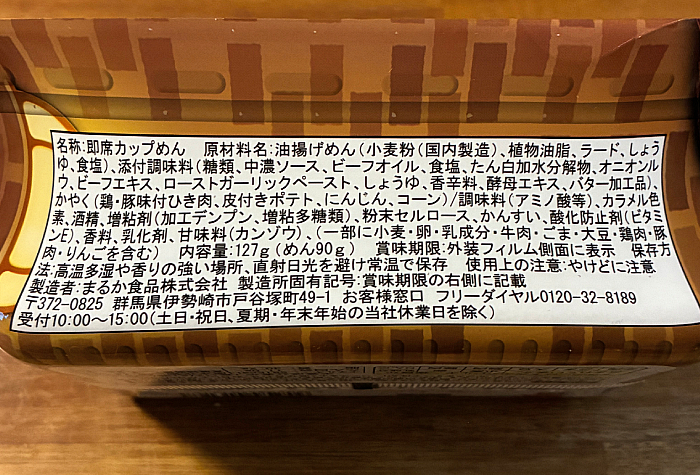 名称:即席カップめん 原材料名:油揚げめん(小麦粉(国内製造)、植物油脂、ラード、しょう
ゆ、食塩)、添付調味料(糖類、中濃ソース、ビーフオイル、食塩、たん白加水分解物、オニオンパ
ウダー、ビーフエキス、ローストガーリックペースト、しょうゆ、香辛料、酵母エキス、バター加工品)、
かやく(鶏・豚味付ひき肉、皮付きポテト、にんじん、コーン)/調味料(アミノ酸等)、カラメル色
素、酒精、増粘剤(加工デンプン、増粘多糖類)、粉末セルロース、かんすい、酸化防止剤(ビタミ
ンE)、香料、乳化剤、甘味料(カンゾウ)、(一部に小麦・卵・乳成分・牛肉・ごま・大豆・鶏肉・豚
肉・りんごを含む) 内容量:127g(めん90g) 賞味期限:外装フィルム側面に表示 保存方
法:高温多湿や香りの強い場所、直射日光を避け常温で保存 使用上の注意:やけどに注意
製造者:まるか食品株式会社 製造所固有記号:賞味期限の右側に記載
〒372-0825 群馬県伊勢崎市戸谷塚町49-1 お客様窓口 フリーダイヤル0120-32-8189
受付10:00～15:00(土日・祝日、夏期・年末年始の当社休業日を除く)